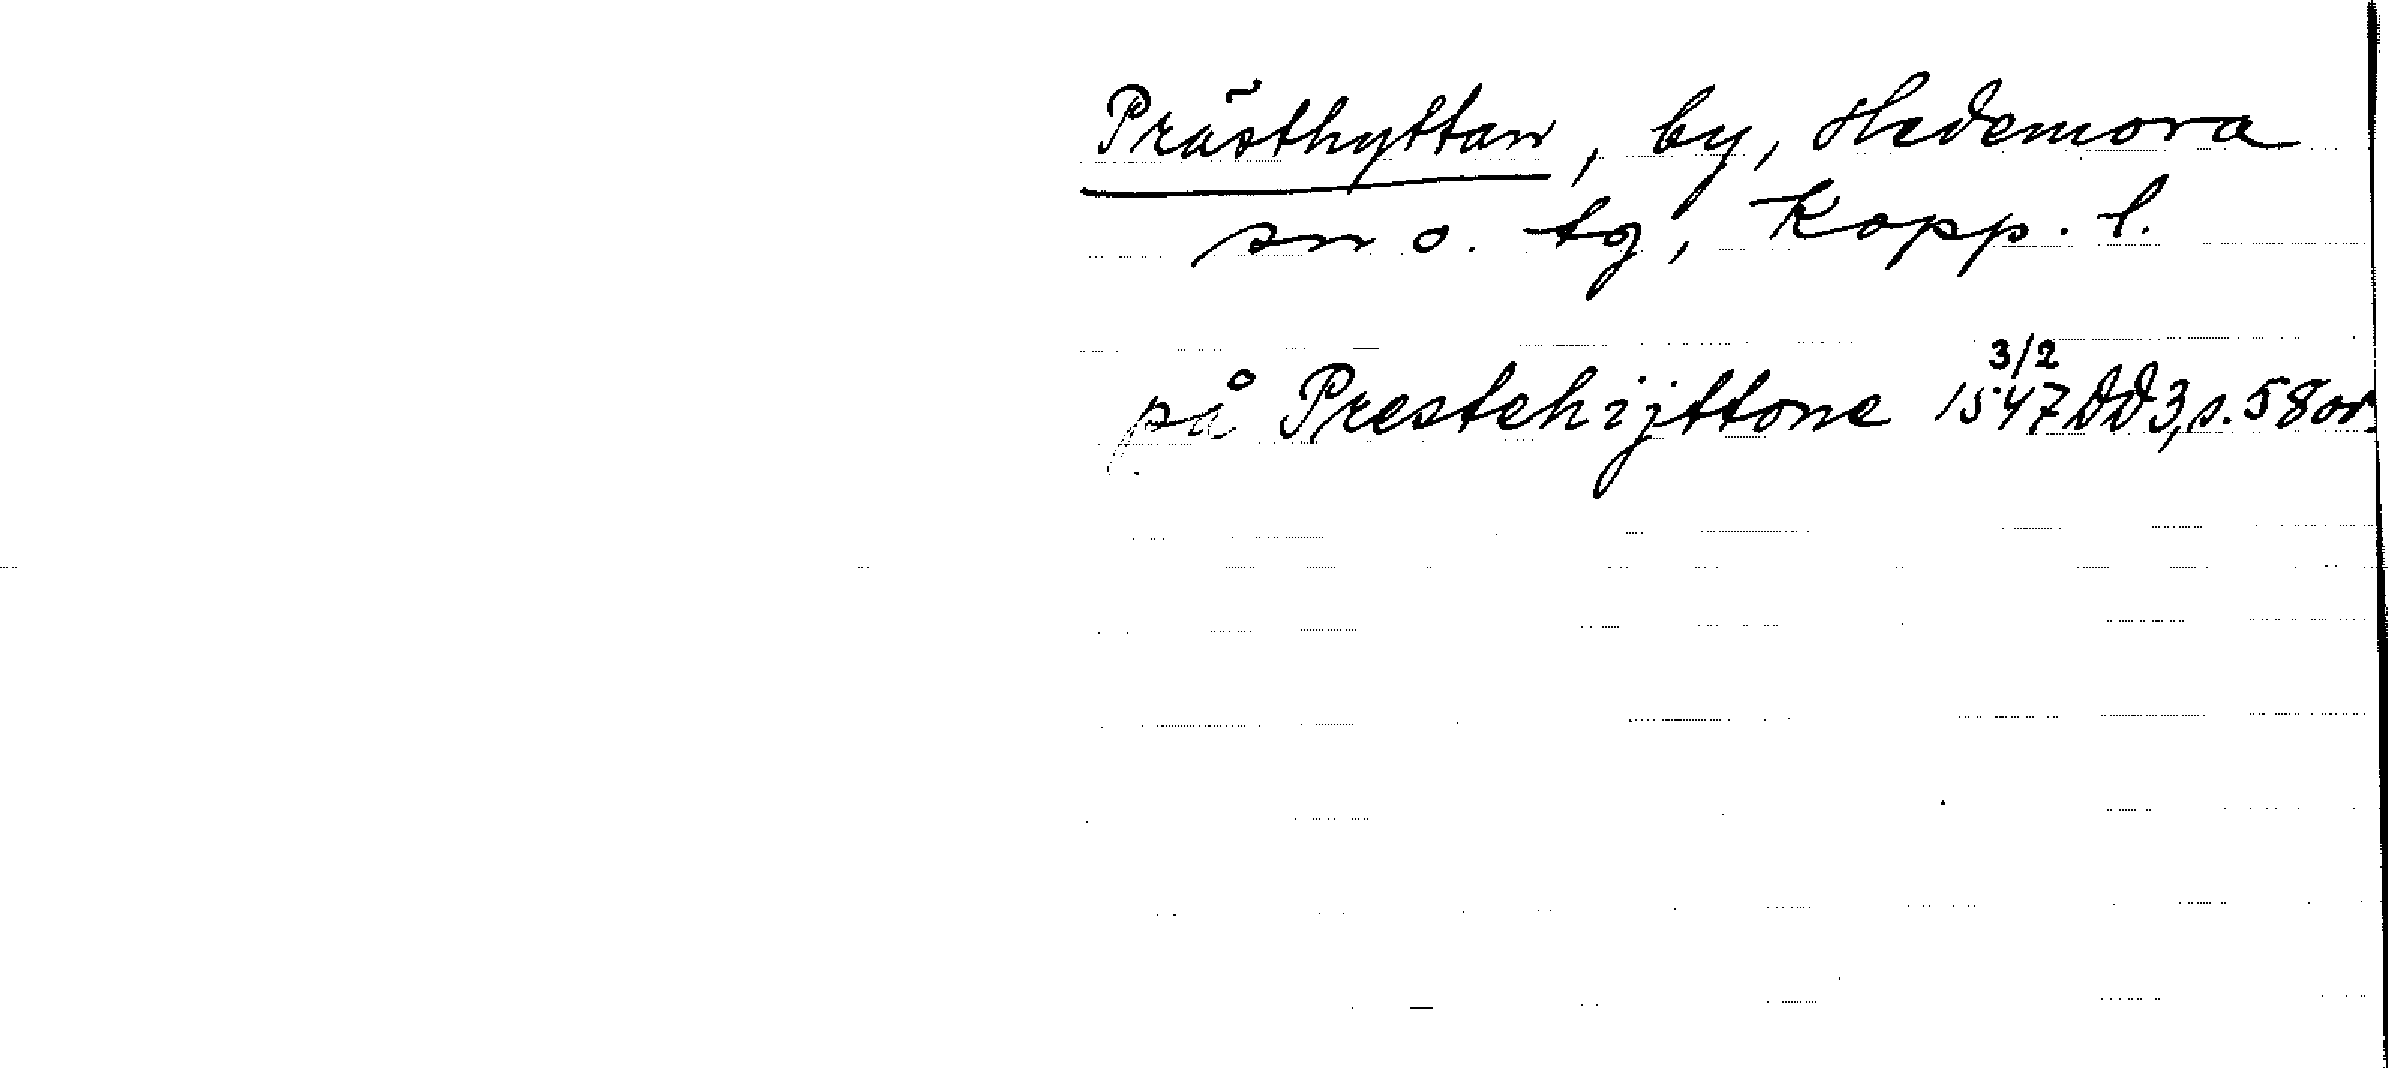 Prästhyttan, by, Hedemora
sn o. tg, Kopp. l.
på Prestehijttone 3/2 1547 DD3, s. 58 or.